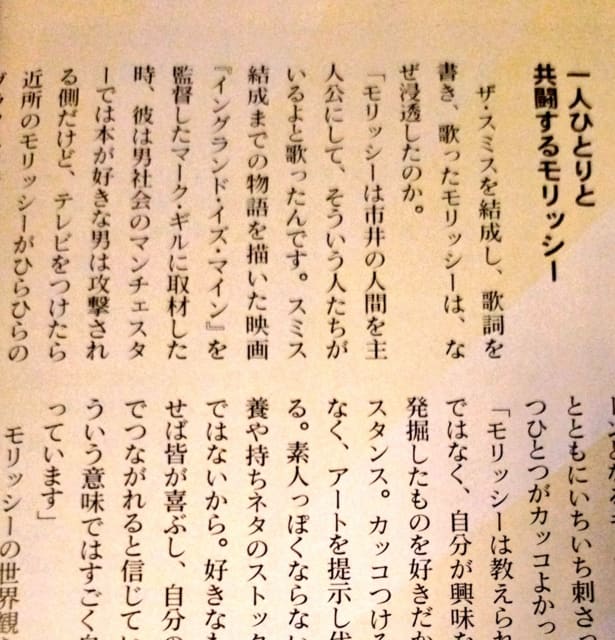 一人ひとりと
共闘するモリッシー
ザ・スミスを結成し、歌詞を
書き、歌ったモリッシーは、な
ぜ浸透したのか。
「モリッシーは市井の人間を主
人公にして、そういう人たちが
いるよと歌ったんです。スミス
結成までの物語を描いた映画
『イングランド・イズ・マイン』を
監督したマーク・ギルに取材した
時、彼は男社会のマンチェスタ
ーでは本が好きな男は攻撃され
る側だけど、テレビをつけたら
近所のモリッシーがひらひらの
とともにいちいち刺さっ
つひとつがカッコよかっ
「モリッシーは教えられ
ではなく、自分が興味な
発掘したものを好きだか
スタンス。カッコつける
なく、アートを提示し
る。素人っぽくならない
養や持ちネタのストック
ではないから。好きなも
せば皆が喜ぶし、自分の
でつながれると信じてい
ういう意味ではすごく
っています」
モリッシーの世界観